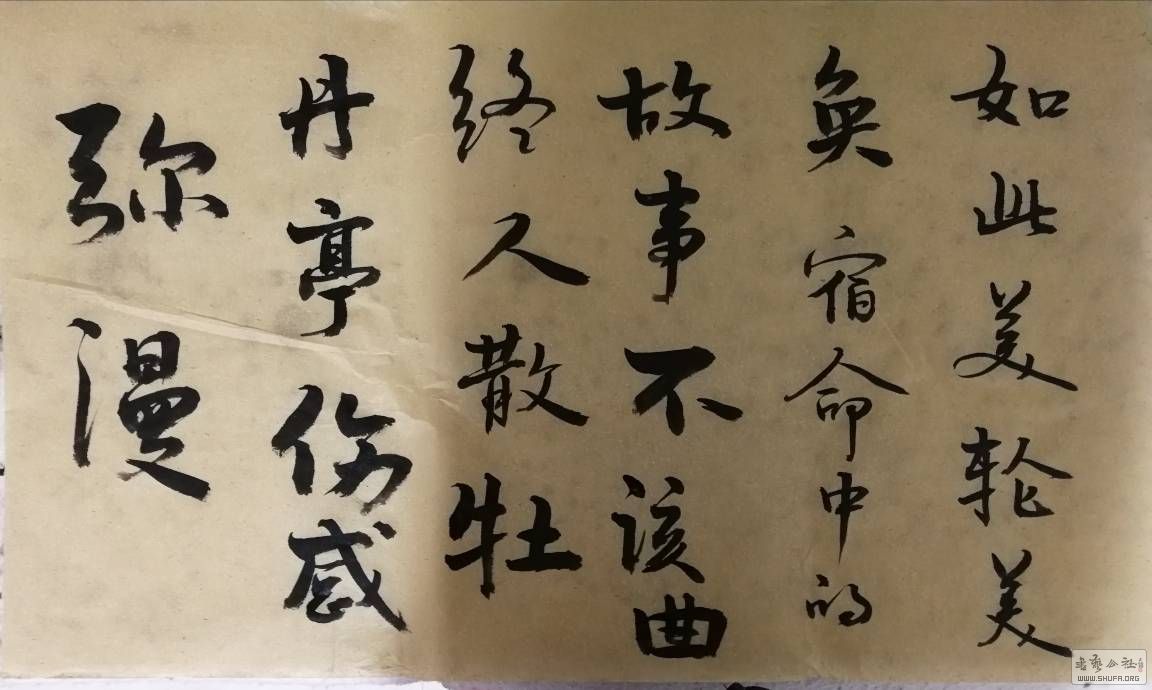 如此美轮美
奂宿命中的
故事不该曲
终人散牡
丹亭伤感
弥漫
书艺公社
WWW.SHUFA.ORG